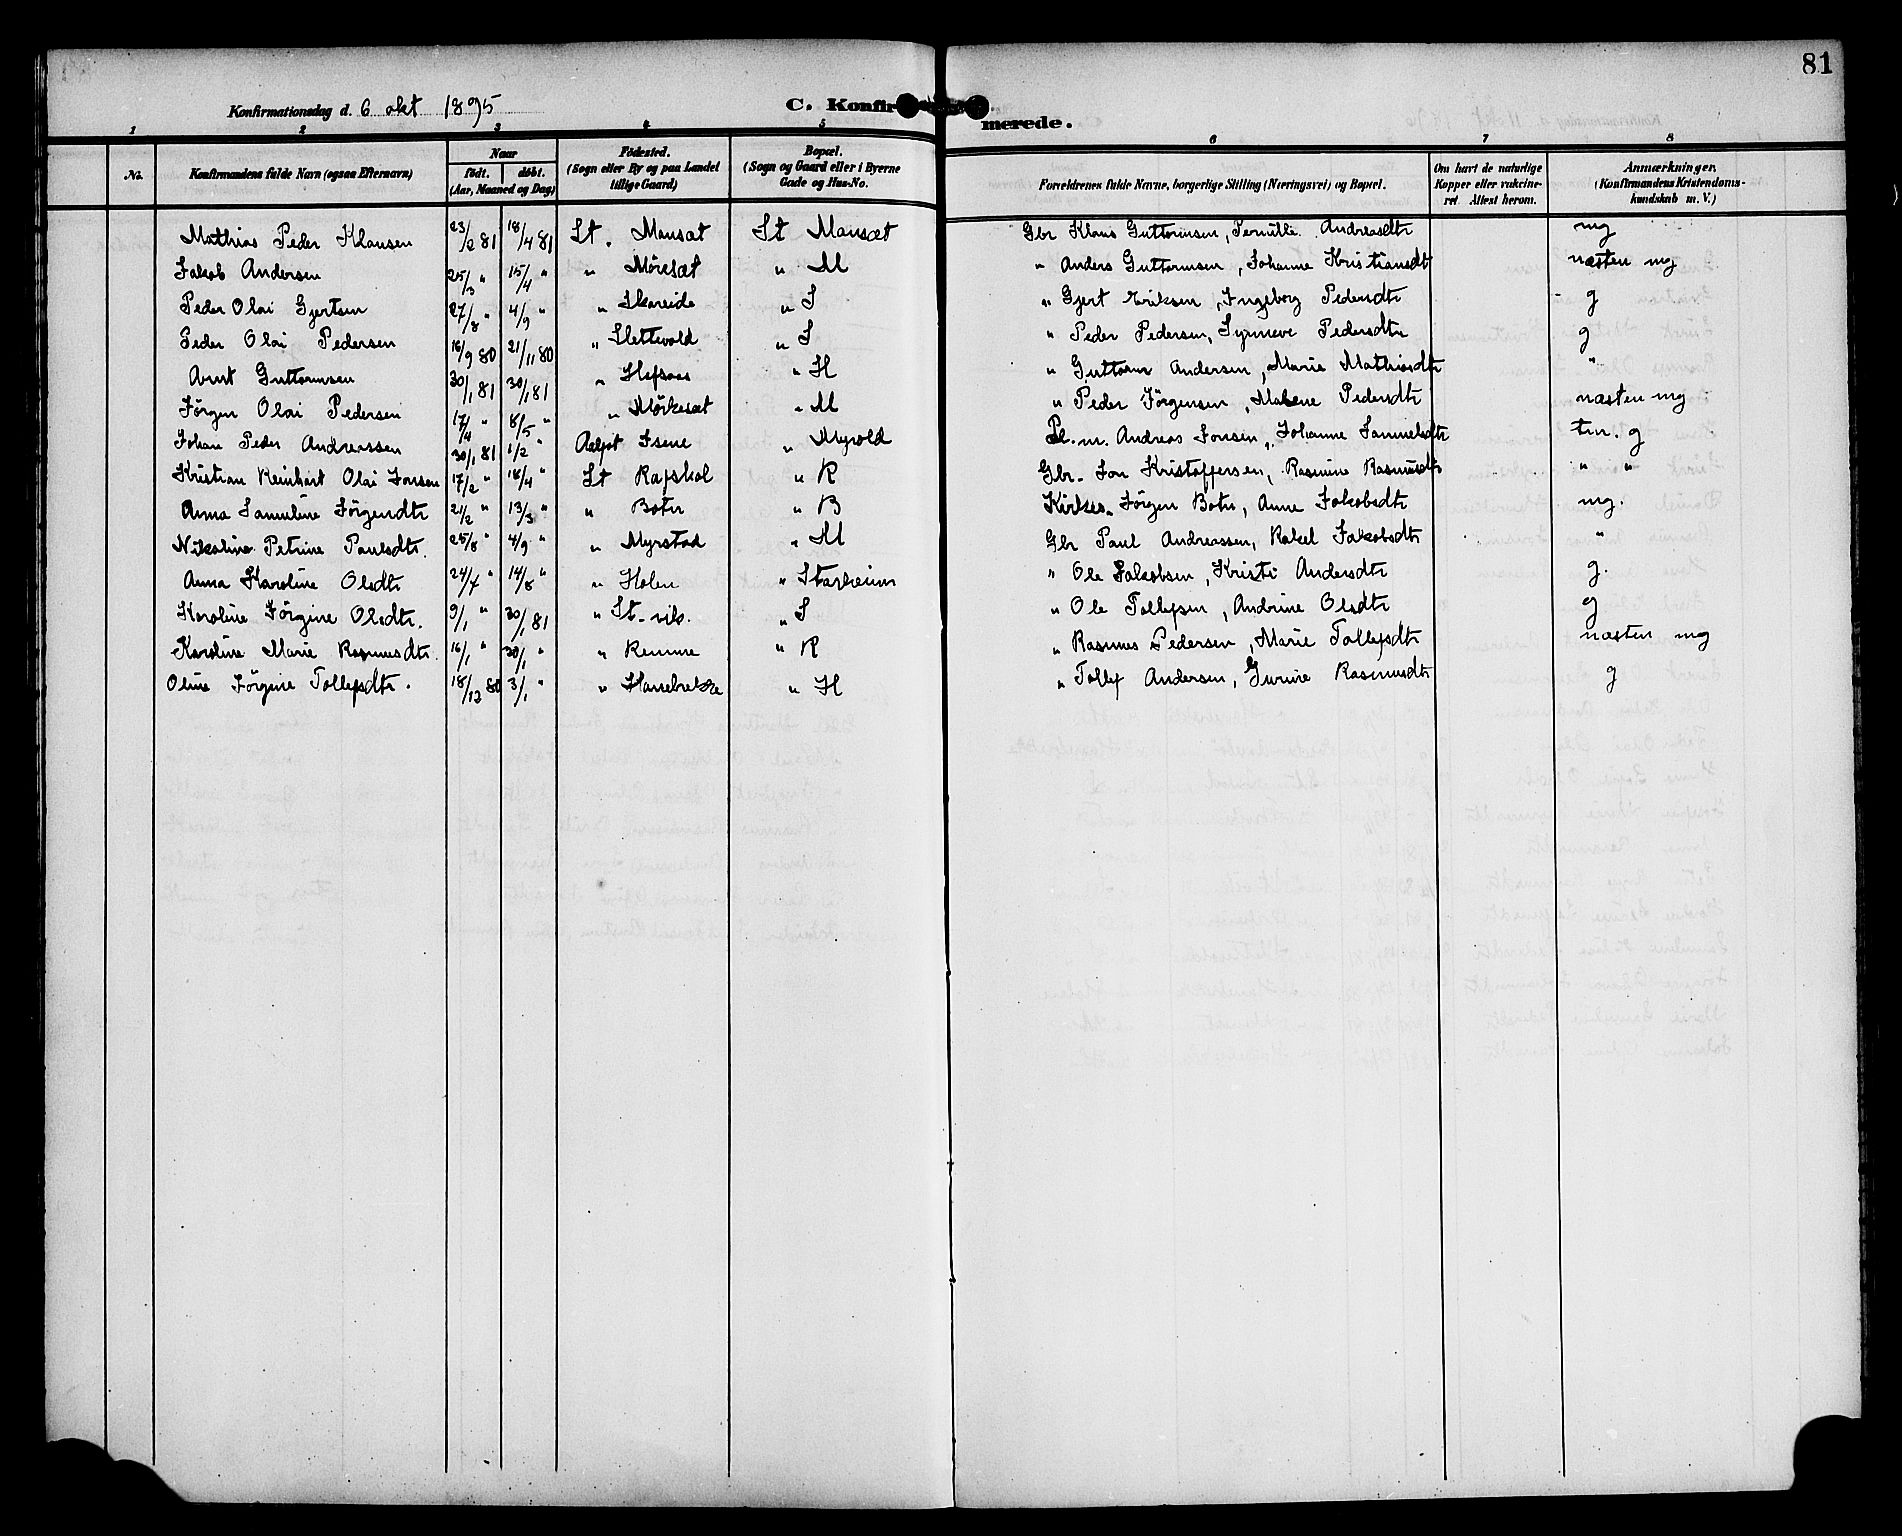 81
Konfirmationsdag d. 6 okt 1895
C. Konfirmerede.
1 2 3 4 5 6 7 8
No. Konfirmandens fulde Navn (ogsaa Efternavn) Naar födt. döbt. (Aar, Maaned og Dag) Födested. (Sogn eller By og paa Landet tillige Gaard) Bopæl. (Sogn og Gaard eller i Byerne Gade og Hus-No. Forældrenes fulde Navne, borgerlige Stilling (Næringsvei) og Bopæl. Om havt de naturlige Kopper eller vakcineret Attest herom. Anmærkninger. (Konfirmandens Kristendomskundskab m. V.)
Mathias Peder Klausen 23/2 81 18/4 81 St. Mansæt St Mansæt Gbr Klaus Guttormsen, Pernille Andreasdtr mg
Jakob Andersen 25/3 " 15/4 " " Möresæt " M " Anders Guttormsen, Johanne Kristiansdtr næsten mg
Peder Olai Gjertsen 27/8 " 4/9 " " Skareide " S " Gjert Eriksen, Ingeborg Pedersdtr g
Peder Olai Pedersen 16/9 80 21/11 80 " Slettevold " S " Peder Pedersen, Synneve Pedersdtr g
Arnt Guttormsen 30/1 81 30/1 81 " Hefsaas " H " Guttorm Andersen, Marie Mathiasdtr "
Jörgen Olai Pedersen 17/4 " 8/5 " " Mörkesæt " M " Peder Jörgensen, Malene Pedersdtr næsten mg
Johan Peder Andreassen 30/1 81 1/2 " Aalfot Isene " Myrold Pl. m. Andreas Jonsen, Johanne Samuelsdtr tm. g
Kristian Reinhart Olai Jonsen 17/2 " 18/4 " St Rafskol " R Gbr. Jon Kristoffersen, Rasmine Rasmusdtr " "
Anna Samuline Jörgendtr 21/2 " 13/3 " " Botn " B Kirkes. Jörgen Botn, Anne Jakobsdtr mg.
Nikoline Petrine Paulsdtr. 25/8 " 4/9 " " Myrstad " M Gbr Paul Andreassen, Rakel Jakobsdtr "
Anna Karoline Olsdtr 24/7 " 14/8 " " Holen " Starheim " Ole Jakobsen, Kristi Andersdtr g.
Karoline Jörgine Olsdtr. 9/1 " 30/1 81 " St.-vik. " S " Ole Tollefsen, Andrine Olsdtr g
Karoline Marie Rasmusdtr. 16/1 " 30/1 " " Remme " R " Rasmus Pedersen, Marie Tollefsdtr næsten mg
Oline Jörgine Tollefsdtr. 18/12 80 3/1 " " Hanebrekke " H " Tollef Andersen, Gurine Rasmusdtr g